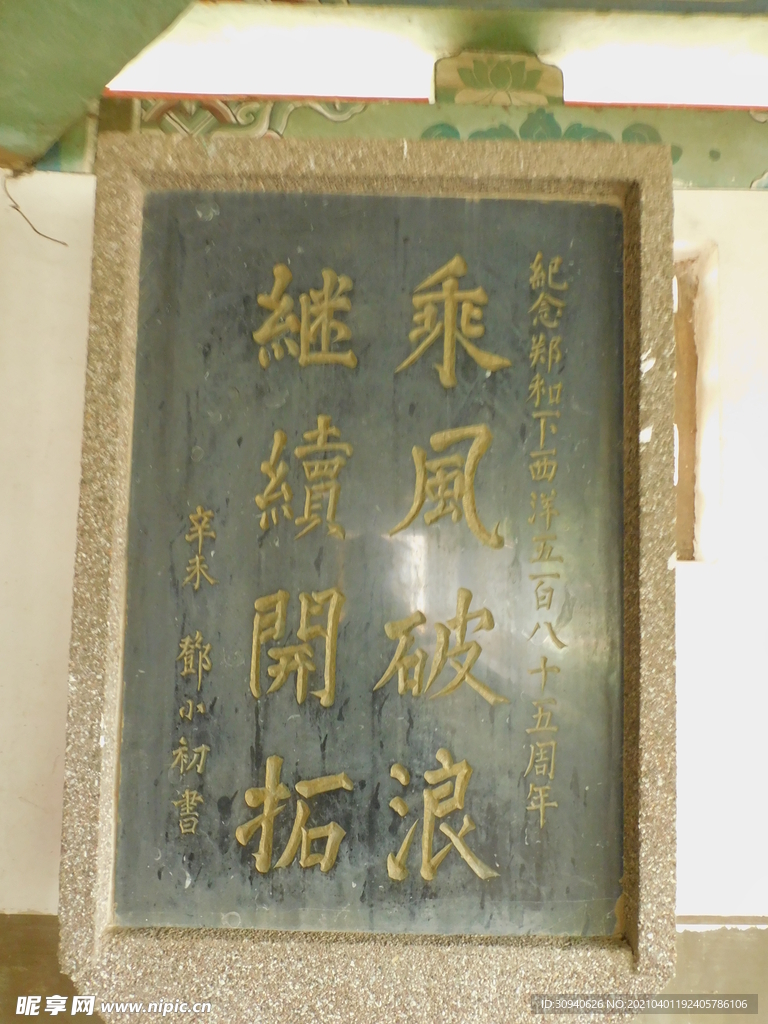 紀念鄭和下西洋五百八十五周年
乘風破浪
継續開拓
辛未 鄧小初書
昵享网 www.nipic.cn
ID:30940626 NO:20210401192405786106